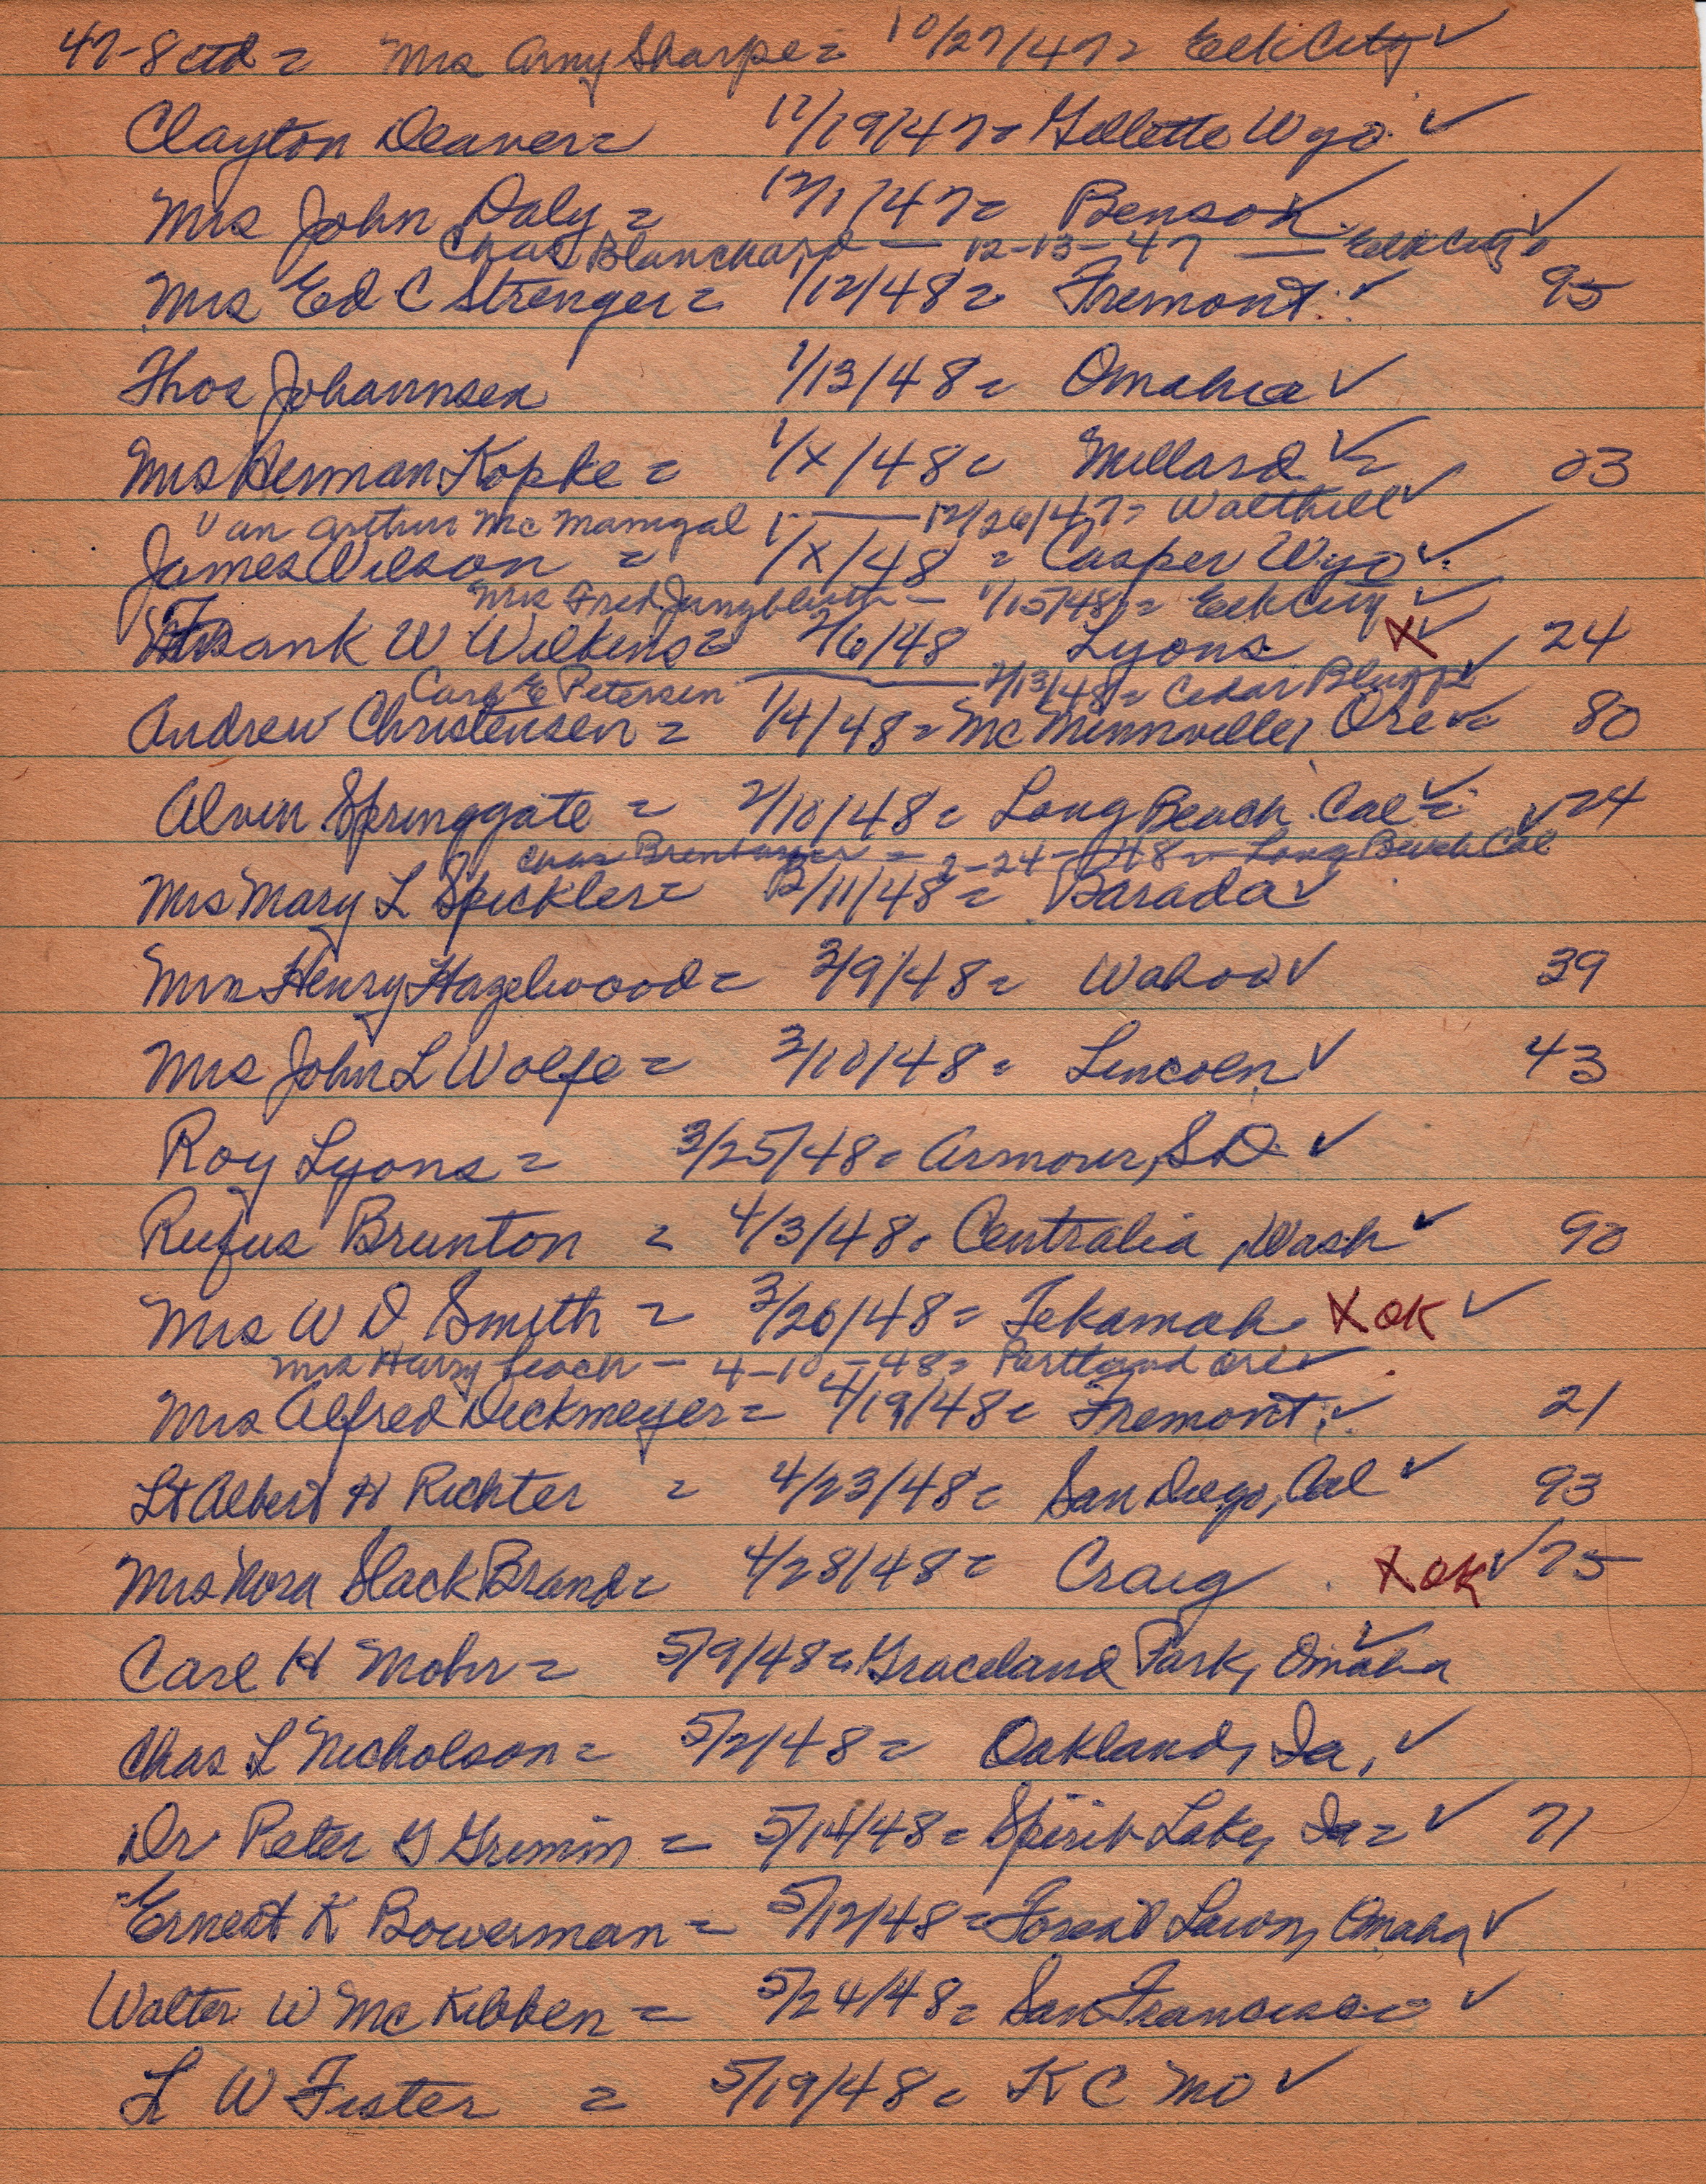 47-8 ctd = Mrs Amy Sharpe = 10/27/47 = Elk City ✓
Clayton Deaver = 11/19/47 = Gillette Wyo. ✓
Mrs John Daly = 12/1/47 = Benson ✓
Chas Blanchard — 12-13-47 — Elk City ✓
Mrs Ed C Strenger = 1/12/48 = Fremont ✓ 95
Thos Johannsen 1/13/48 = Omaha ✓
Mrs Herman Kopke = 1/X/48 = Millard ✓ 23
Van Arthur McManigal — 12/26/47 = Walthill ✓
James Wilson = 1/X/48 = Casper Wyo ✓
Mrs Fred Jungbluth — 1/15/48 = Elk City ✓
Frank W Wilkins = 2/6/48 Lyons X ✓ 24
Carl E Petersen — 2/13/48 = Cedar Bluffs ✓
Andrew Christensen = 1/4/48 = McMinnville, Ore ✓ 80
Alvin Springgate = 2/10/48 = Long Beach Cal ✓ 24
Chas = 2-24-48 = Long Beach Cal ✓
Mrs Mary L Spickler = 2/11/48 = Barada ✓
Mrs Henry Hazelwood = 3/9/48 = Wahoo ✓ 39
Mrs John L Wolfe = 3/10/48 = Lincoln ✓ 43
Roy Lyons = 3/25/48 = Armour, SD ✓
Rufus Brunton = 4/3/48 = Centralia, Wash ✓ 90
Mrs W D Smith = 3/20/48 = Tekamah X OK ✓
Mrs Harry Leach — 4-10-48 = Portland Ore ✓
Mrs Alfred Dickmeyer = 4/19/48 = Fremont ✓ 21
Lt Albert H Richter = 4/23/48 = San Diego, Cal ✓ 93
Mrs Nora Slack Brand = 4/28/48 = Craig X OK ✓ 75
Carl H Mohr = 5/9/48 = Graceland Park, Omaha ✓
Chas L Nicholson = 5/2/48 = Oakland, Ia, ✓
Dr Peter G Grimm = 5/14/48 = Spirit Lake, Ia = ✓ 71
Ernest K Bowerman = 5/12/48 = Forest Lawn, Omaha ✓
Walter W McKibben = 5/24/48 = San Francisco ✓
L W Fister = 5/19/48 = K C Mo ✓